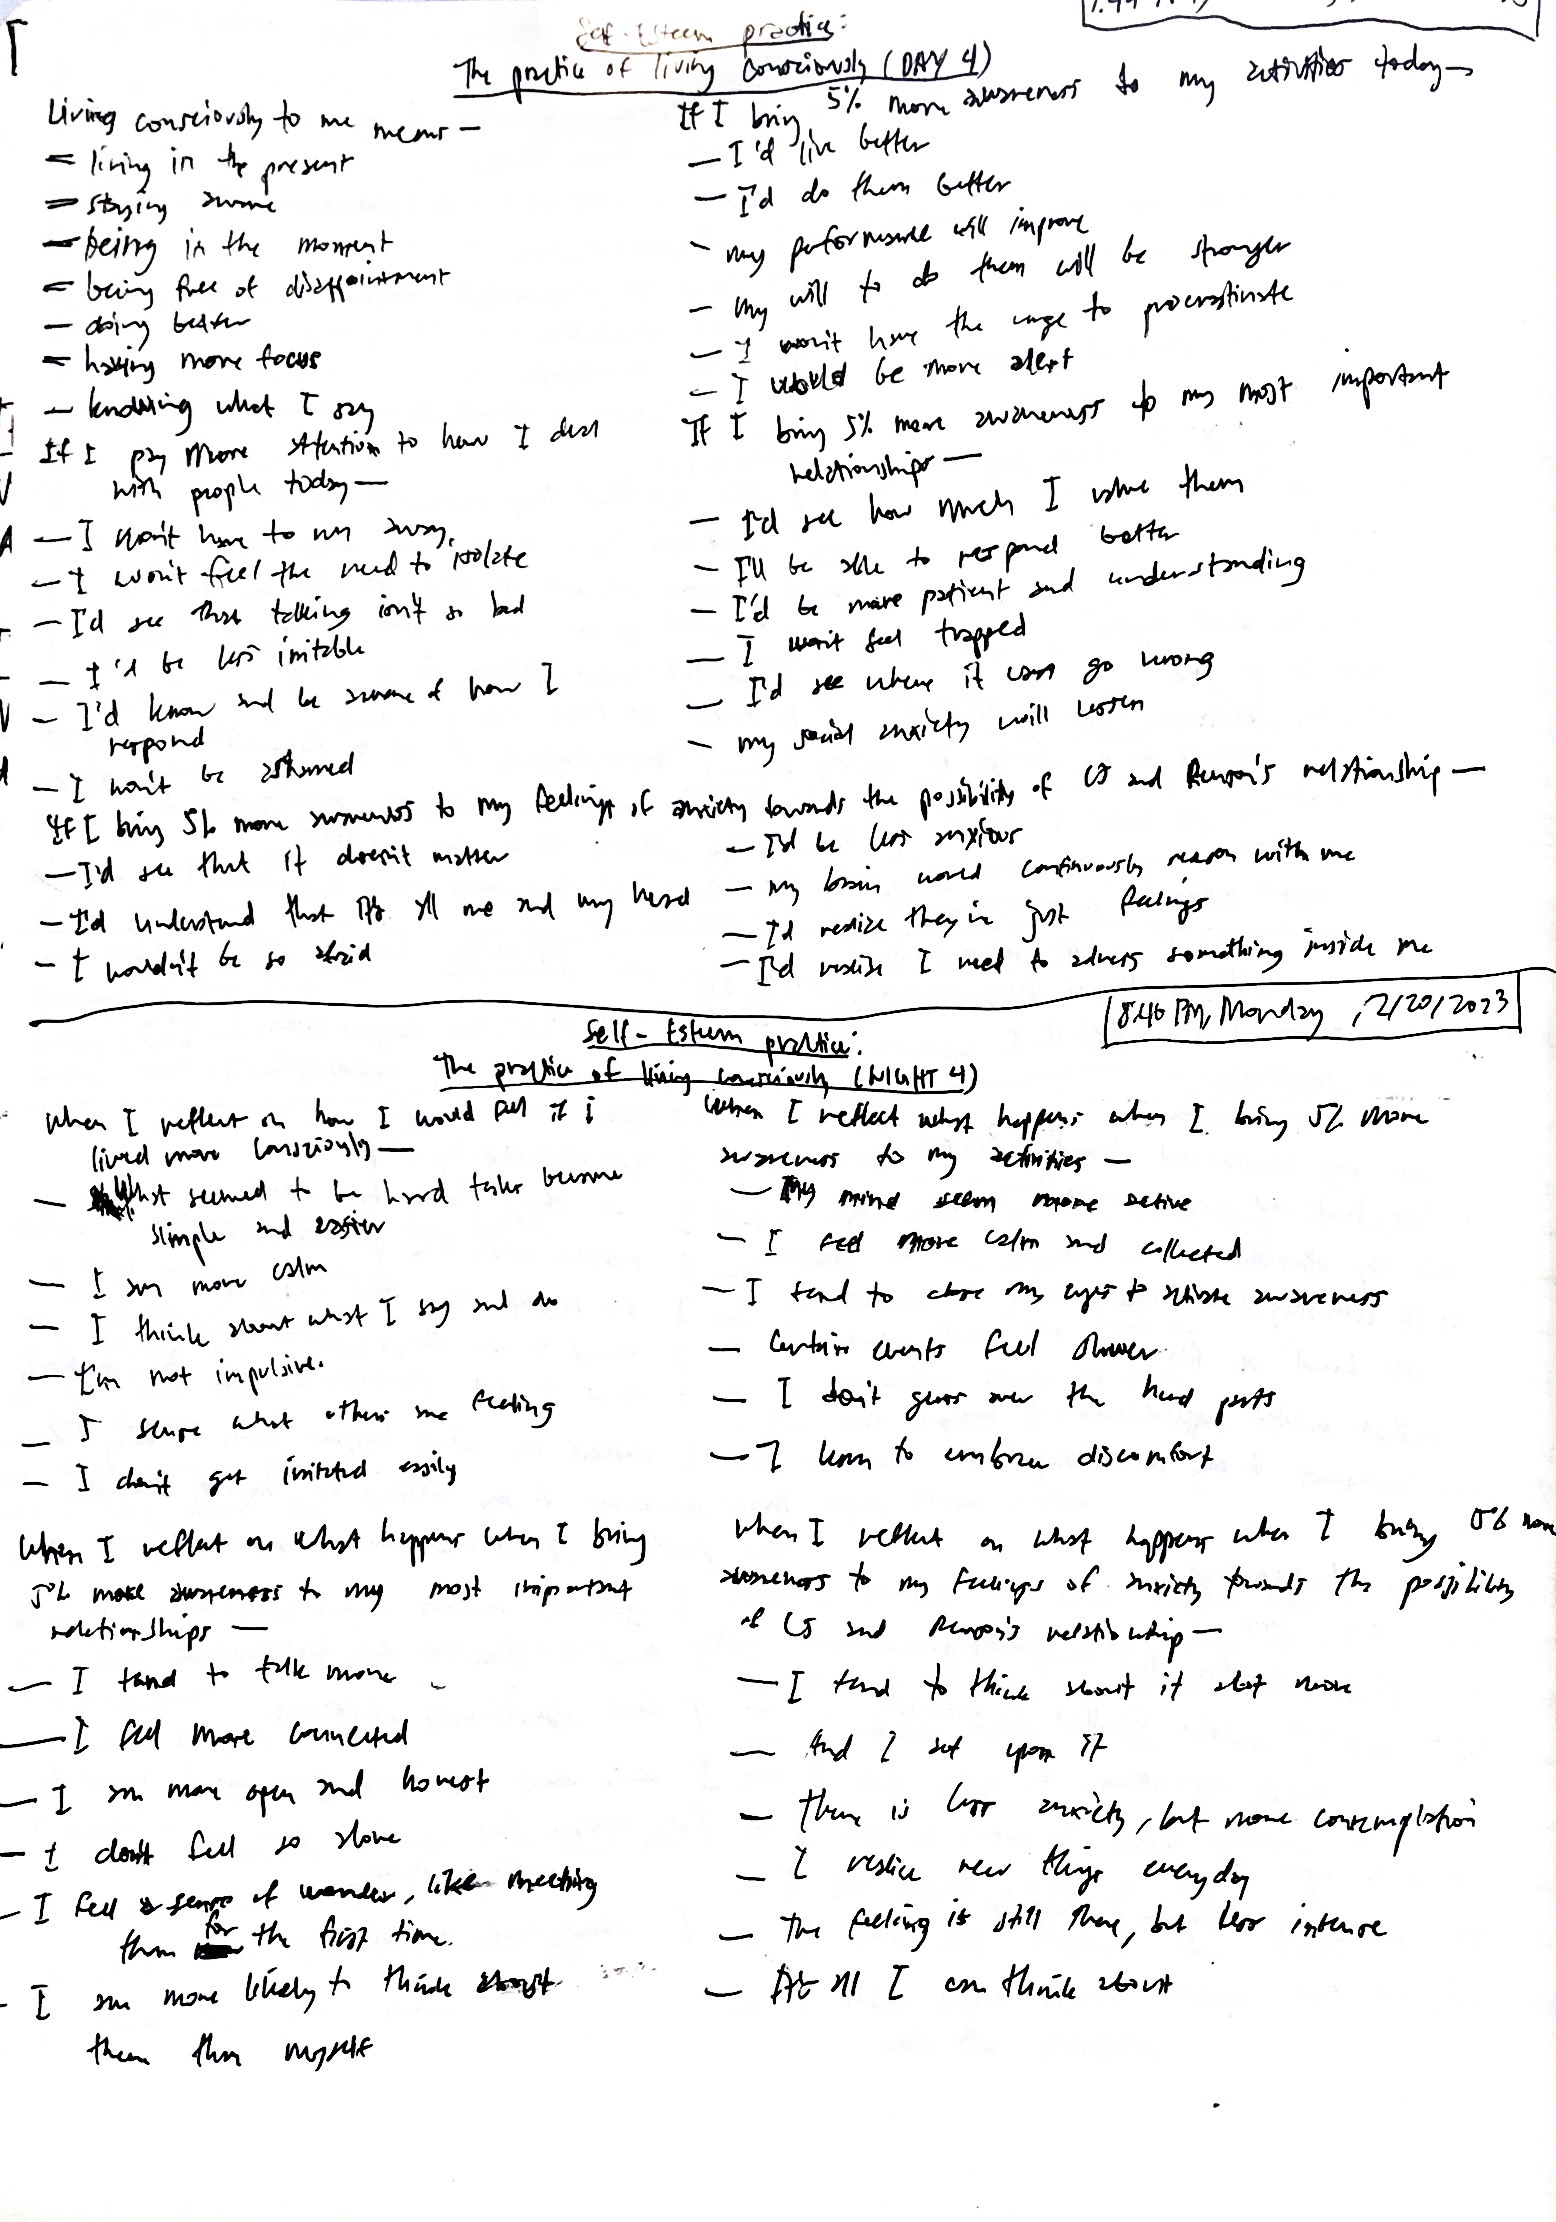 Self-Esteem practice:
The practice of living consciously (DAY 4)
Living consciously to me means —
— living in the present
— staying aware
— being in the moment
— being free of disappointment
— doing better
— having more focus
— knowing what I say
If I pay more attention to how I deal
with people today —
— I won't have to run away,
— I won't feel the need to isolate
— I'd see that talking isn't so bad
— I'd be less irritable
— I'd know and be aware of how I
respond
— I won't be ashamed
If I bring 5% more awareness to my activities today —
— I'd live better
— I'd do them better
— my performance will improve
— my will to do them will be stronger
— I won't have the urge to procrastinate
— I would be more alert
If I bring 5% more awareness to my most important
relationships —
— I'd see how much I value them
— I'll be able to respond better
— I'd be more patient and understanding
— I won't feel trapped
— I'd see where it went go wrong
— my social anxiety will lessen
If I bring 5% more awareness to my feelings of anxiety towards the possibility of CJ and relationship —
— I'd see that it doesn't matter
— I'd understand that it's all me and my head
— I wouldn't be so afraid
— I'd be less anxious
— my brain would continuously reason with me
— I'd realize they're just feelings
— I'd realise I need to adress something inside me
8:40 PM, Monday, 2/20/2023
Self-Esteem practice:
The practice of living consciously (NIGHT 4)
When I reflect on how I would feel if i
lived more consciously —
— What seemed to be hard tasks become
simple and easier
— I am more calm
— I think about what I say and do
— I'm not impulsive.
— I sense what others are feeling
— I don't get irritated easily
When I reflect what happens when I bring 5% more
awareness to my activities —
— My mind seem more active
— I feel more calm and collected
— I tend to close my eyes to activate awareness
— Certain events feel slower
— I don't gloss over the hard parts
— I learn to embrace discomfort
When I reflect on what happens when I bring
5% more awareness to my most important
relationships —
— I tend to talk more
— I feel more connected
— I am more open and honest
— I don't feel so alone
— I feel a sense of wonder, like meeting
them for the first time.
— I am more likely to think about
them than myself
When I reflect on what happens when I bring 5% more
awareness to my feelings of anxiety towards the possibility
of CJ and relationship —
— I tend to think about it alot more
— And I act upon it
— there is less anxiety, but more contemplation
— I realize new things everyday
— The feeling is still there, but less intense
— All I can think about